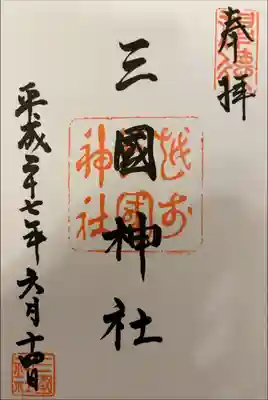 奉拝
三國神社
越前
三國
神社
平成二十七年六月十四日